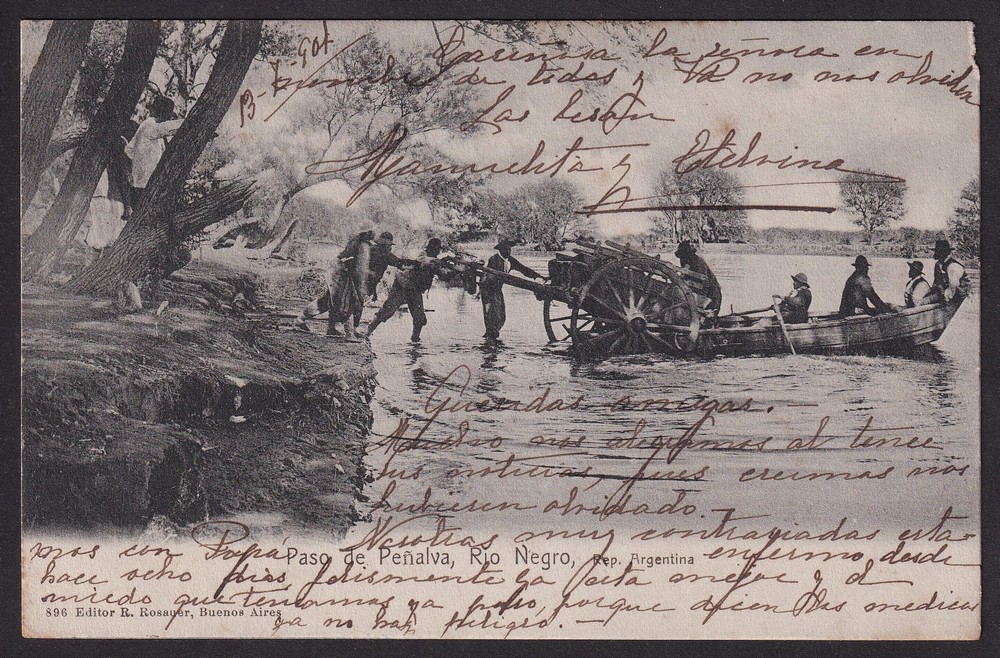 Cariñosa la señora en
nombre de todas y Va no nos olviden
Las besan
Manuelita y Etelvina
Queridas amigas.-
Mucho nos alegramos al tener
sus noticias, pues creímos nos
hubiesen olvidado.-
Nosotras muy contrariadas esta-
mos con Papá enfermo desde
hace ocho días, felismente ya está mejor y el
miedo que teníamos ya pasó, porque dicen los medicos
ya no hay peligro.-
Paso de Peñalva, Rio Negro, Rep. Argentina
896 Editor R. Rosauer, Buenos Aires